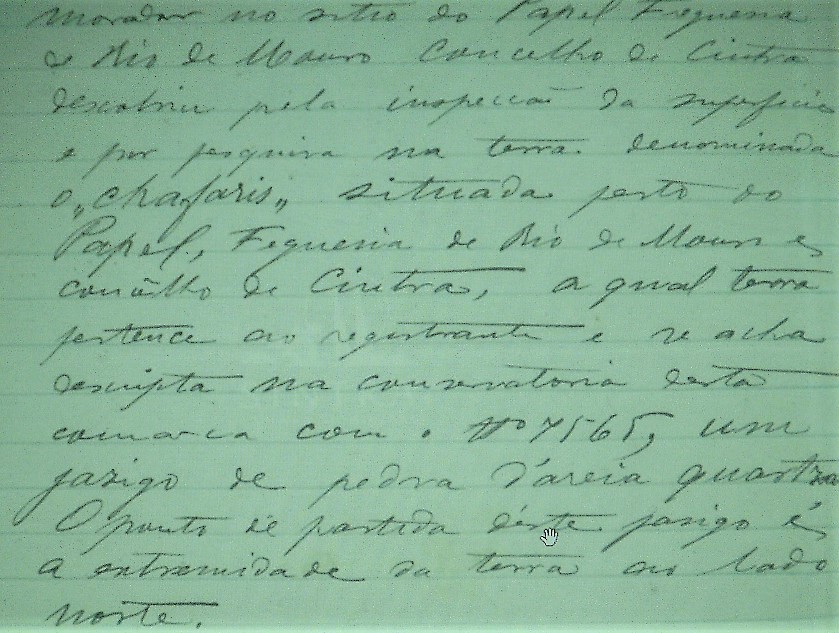 morador no sitio do Papel Feguesia
de Rio de Mouro Concelho de Cintra
descobriu pela inspecção da superficie
e por pesquisa na terra denominada
o "chafaris" situada perto do
Papel, Feguesia de Rio de Mouro e
concêlho de Cintra, a qual terra
pertence ao registrante e se acha
descripta na conservatoria desta
comarca com o Nº 7565, um
jasigo de pedra d'areia quartza
O ponto de partida déste jasigo é
a extremidade da terra ao lado
norte.